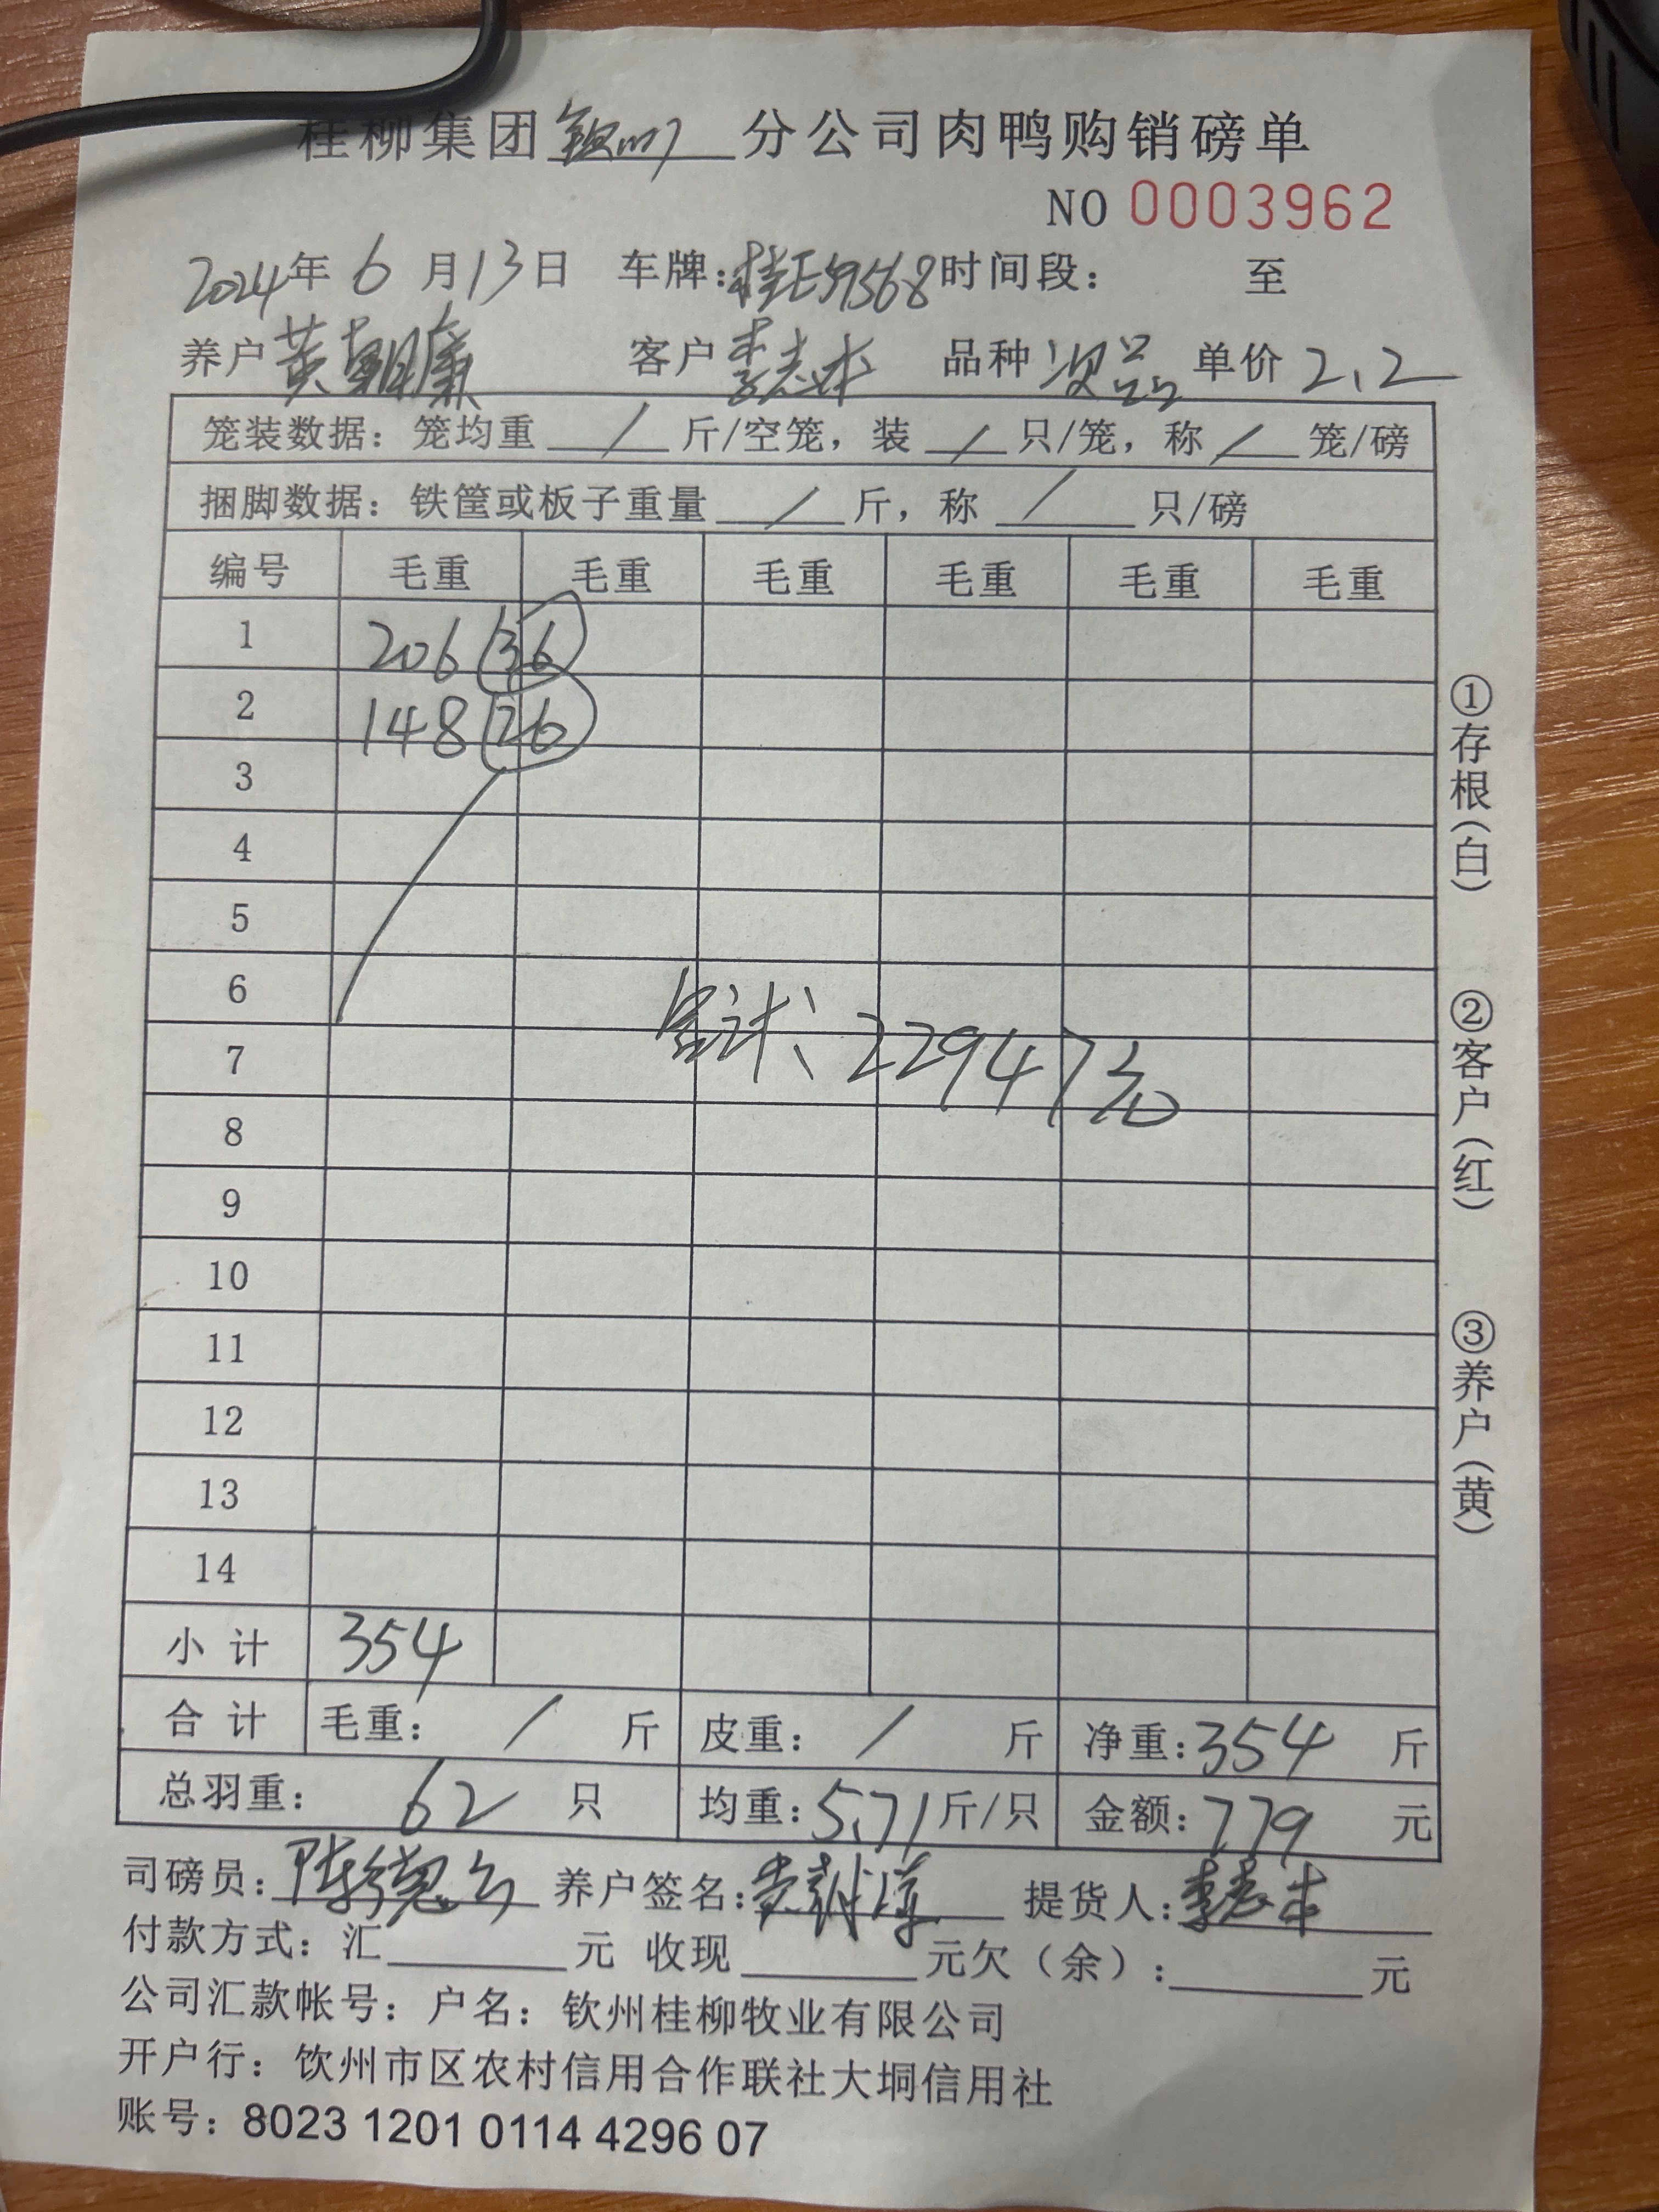 桂柳集团钦州分公司肉鸭购销磅单
NO 0003962
2024年6月13日 车牌:桂E59568时间段: 至
养户黄朝廉 客户李志成 品种次品 单价2.2
笼装数据: 笼均重 / 斤/空笼, 装 / 只/笼, 称 / 笼/磅
捆脚数据: 铁筐或板子重量 / 斤, 称 / 只/磅
编号 毛重 毛重 毛重 毛重 毛重 毛重
1 206 36
2 148 26
3
4
5
6
合计: 22947元
7
8
9
10
11
12
13
14
小计 354
合计 毛重: / 斤 皮重: / 斤 净重:354 斤
总羽重: 62 只 均重:5.71斤/只 金额:779 元
司磅员: 养户签名: 提货人:
付款方式: 汇 元 收现 元欠(余): 元
公司汇款帐号: 户名: 钦州桂柳牧业有限公司
开户行: 饮州市区农村信用合作联社大垌信用社
账号: 8023 1201 0114 4296 07
①存根(白)
②客户(红)
③养户(黄)